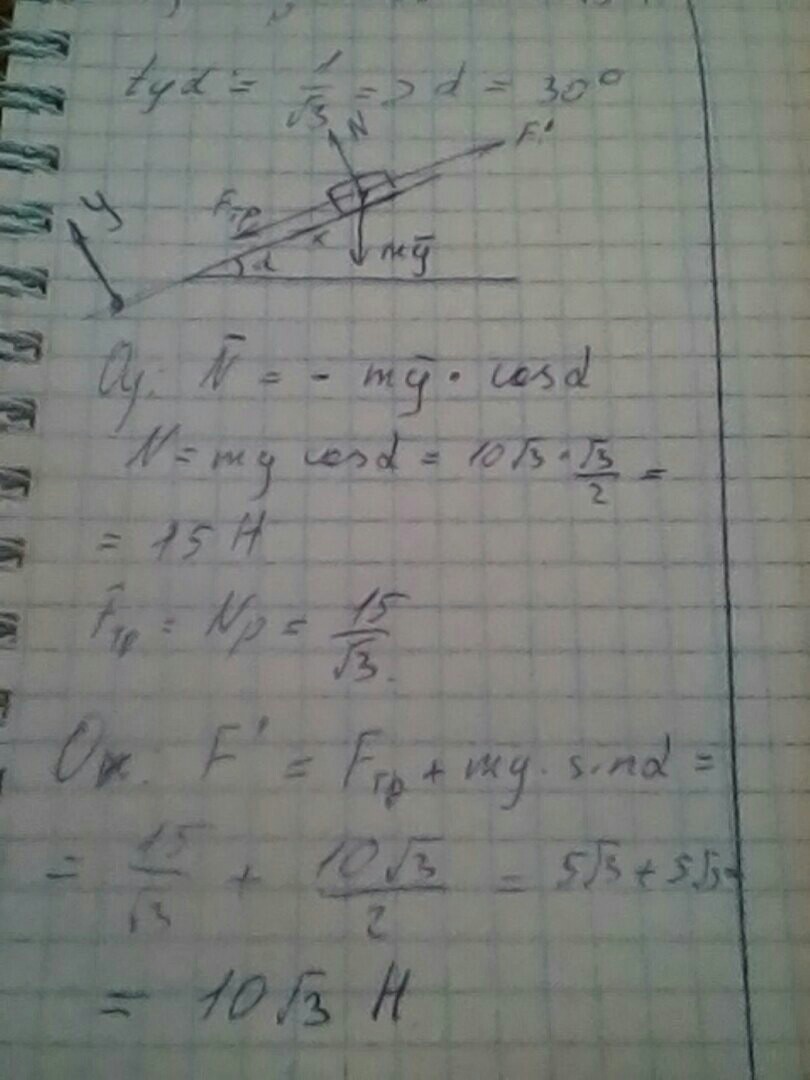 tgα = 1/√3 => α = 30°
N F'
Fтр
y x α mg̅
Oy: N̅ = - mg̅ · cosα
N = mg cosα = 10√3 · √3/2 =
= 15 Н
F̅тр = Nμ = 15/√3.
Ox: F' = Fтр + mg · sinα =
= 15/√3 + 10√3/2 = 5√3 + 5√3 =
= 10√3 Н